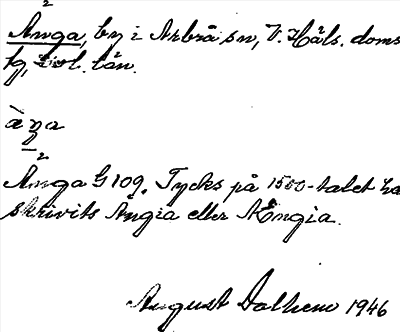 Ånga, by i Arbrå sn, V. Häls. doms
tg, Gvl. län.
àŋa
Ånga G 109. Tycks på 1500-talet ha
skrivits Ångia eller Ængia.
August Dalhem 1946